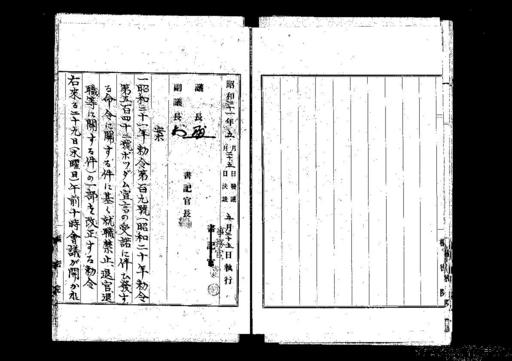 昭和二十一年五月二十五日発議
月 日決議
五月二十五日執行
議長
副議長
書記官長
書記官
案
一昭和二十一年勅令第百九號(昭和二十年勅令
第五百四十二號ポツダム宣言の受諾に伴ひ發す
る命令に關する件に基く就職禁止、退官、退
職等に關する件)の一部を改正する勅令
右来る二十九日(水曜日)午前十時會議が開かれ